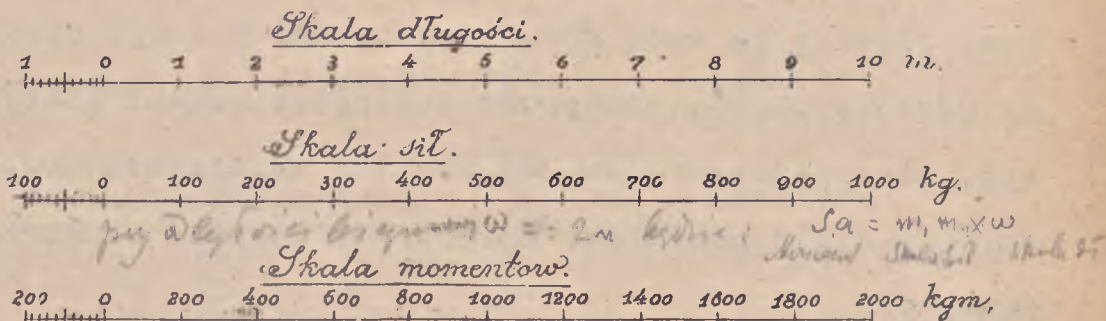 Skala długości.
1 0 1 2 3 4 5 6 7 8 9 10 m.
Skala sił.
100 0 100 200 300 400 500 600 700 800 900 1000 kg.
przy = 2m będzie: S.a = m, m x w
Moment
Skala momentow.
200 0 200 400 600 800 1000 1200 1400 1600 1800 2000 kgm,